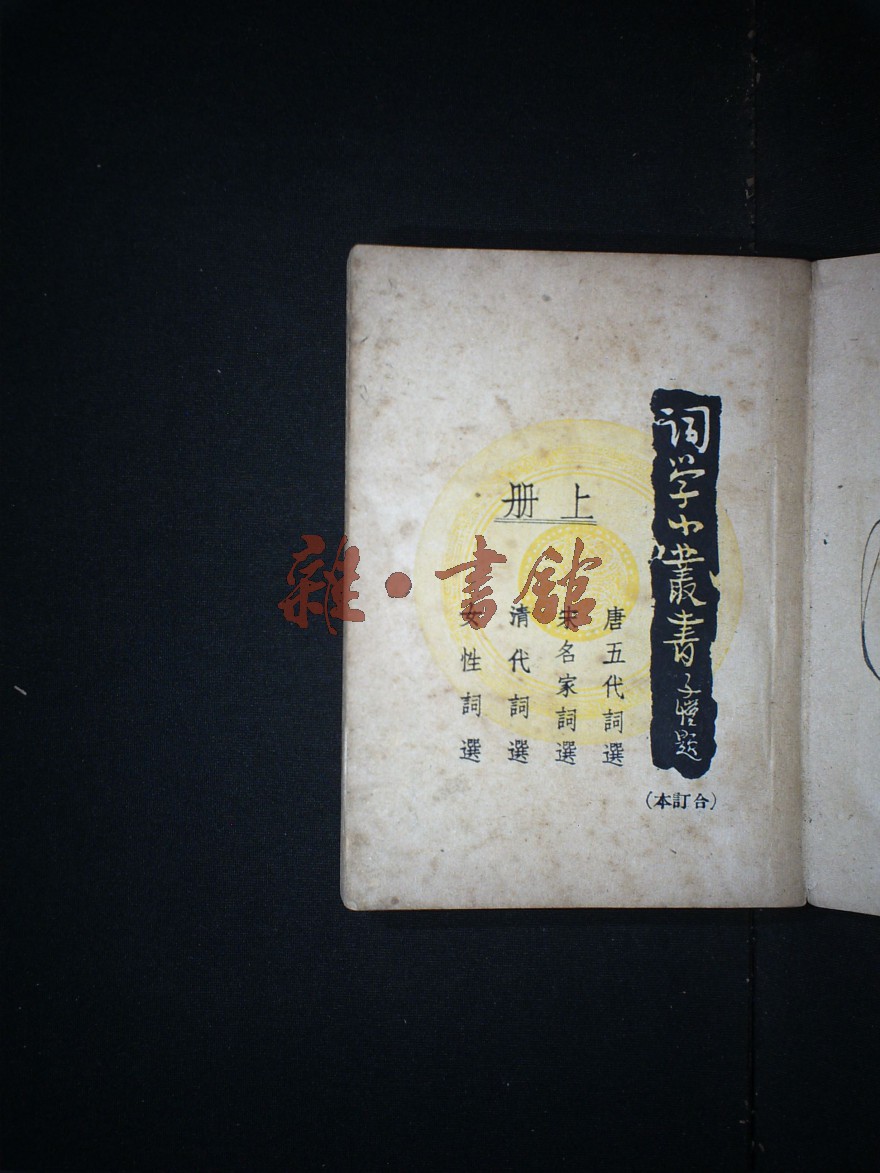 詞学小叢書 子愷題
（合訂本）
上册
唐五代詞選
宋名家詞選
清代詞選
女性詞選
雜·書館